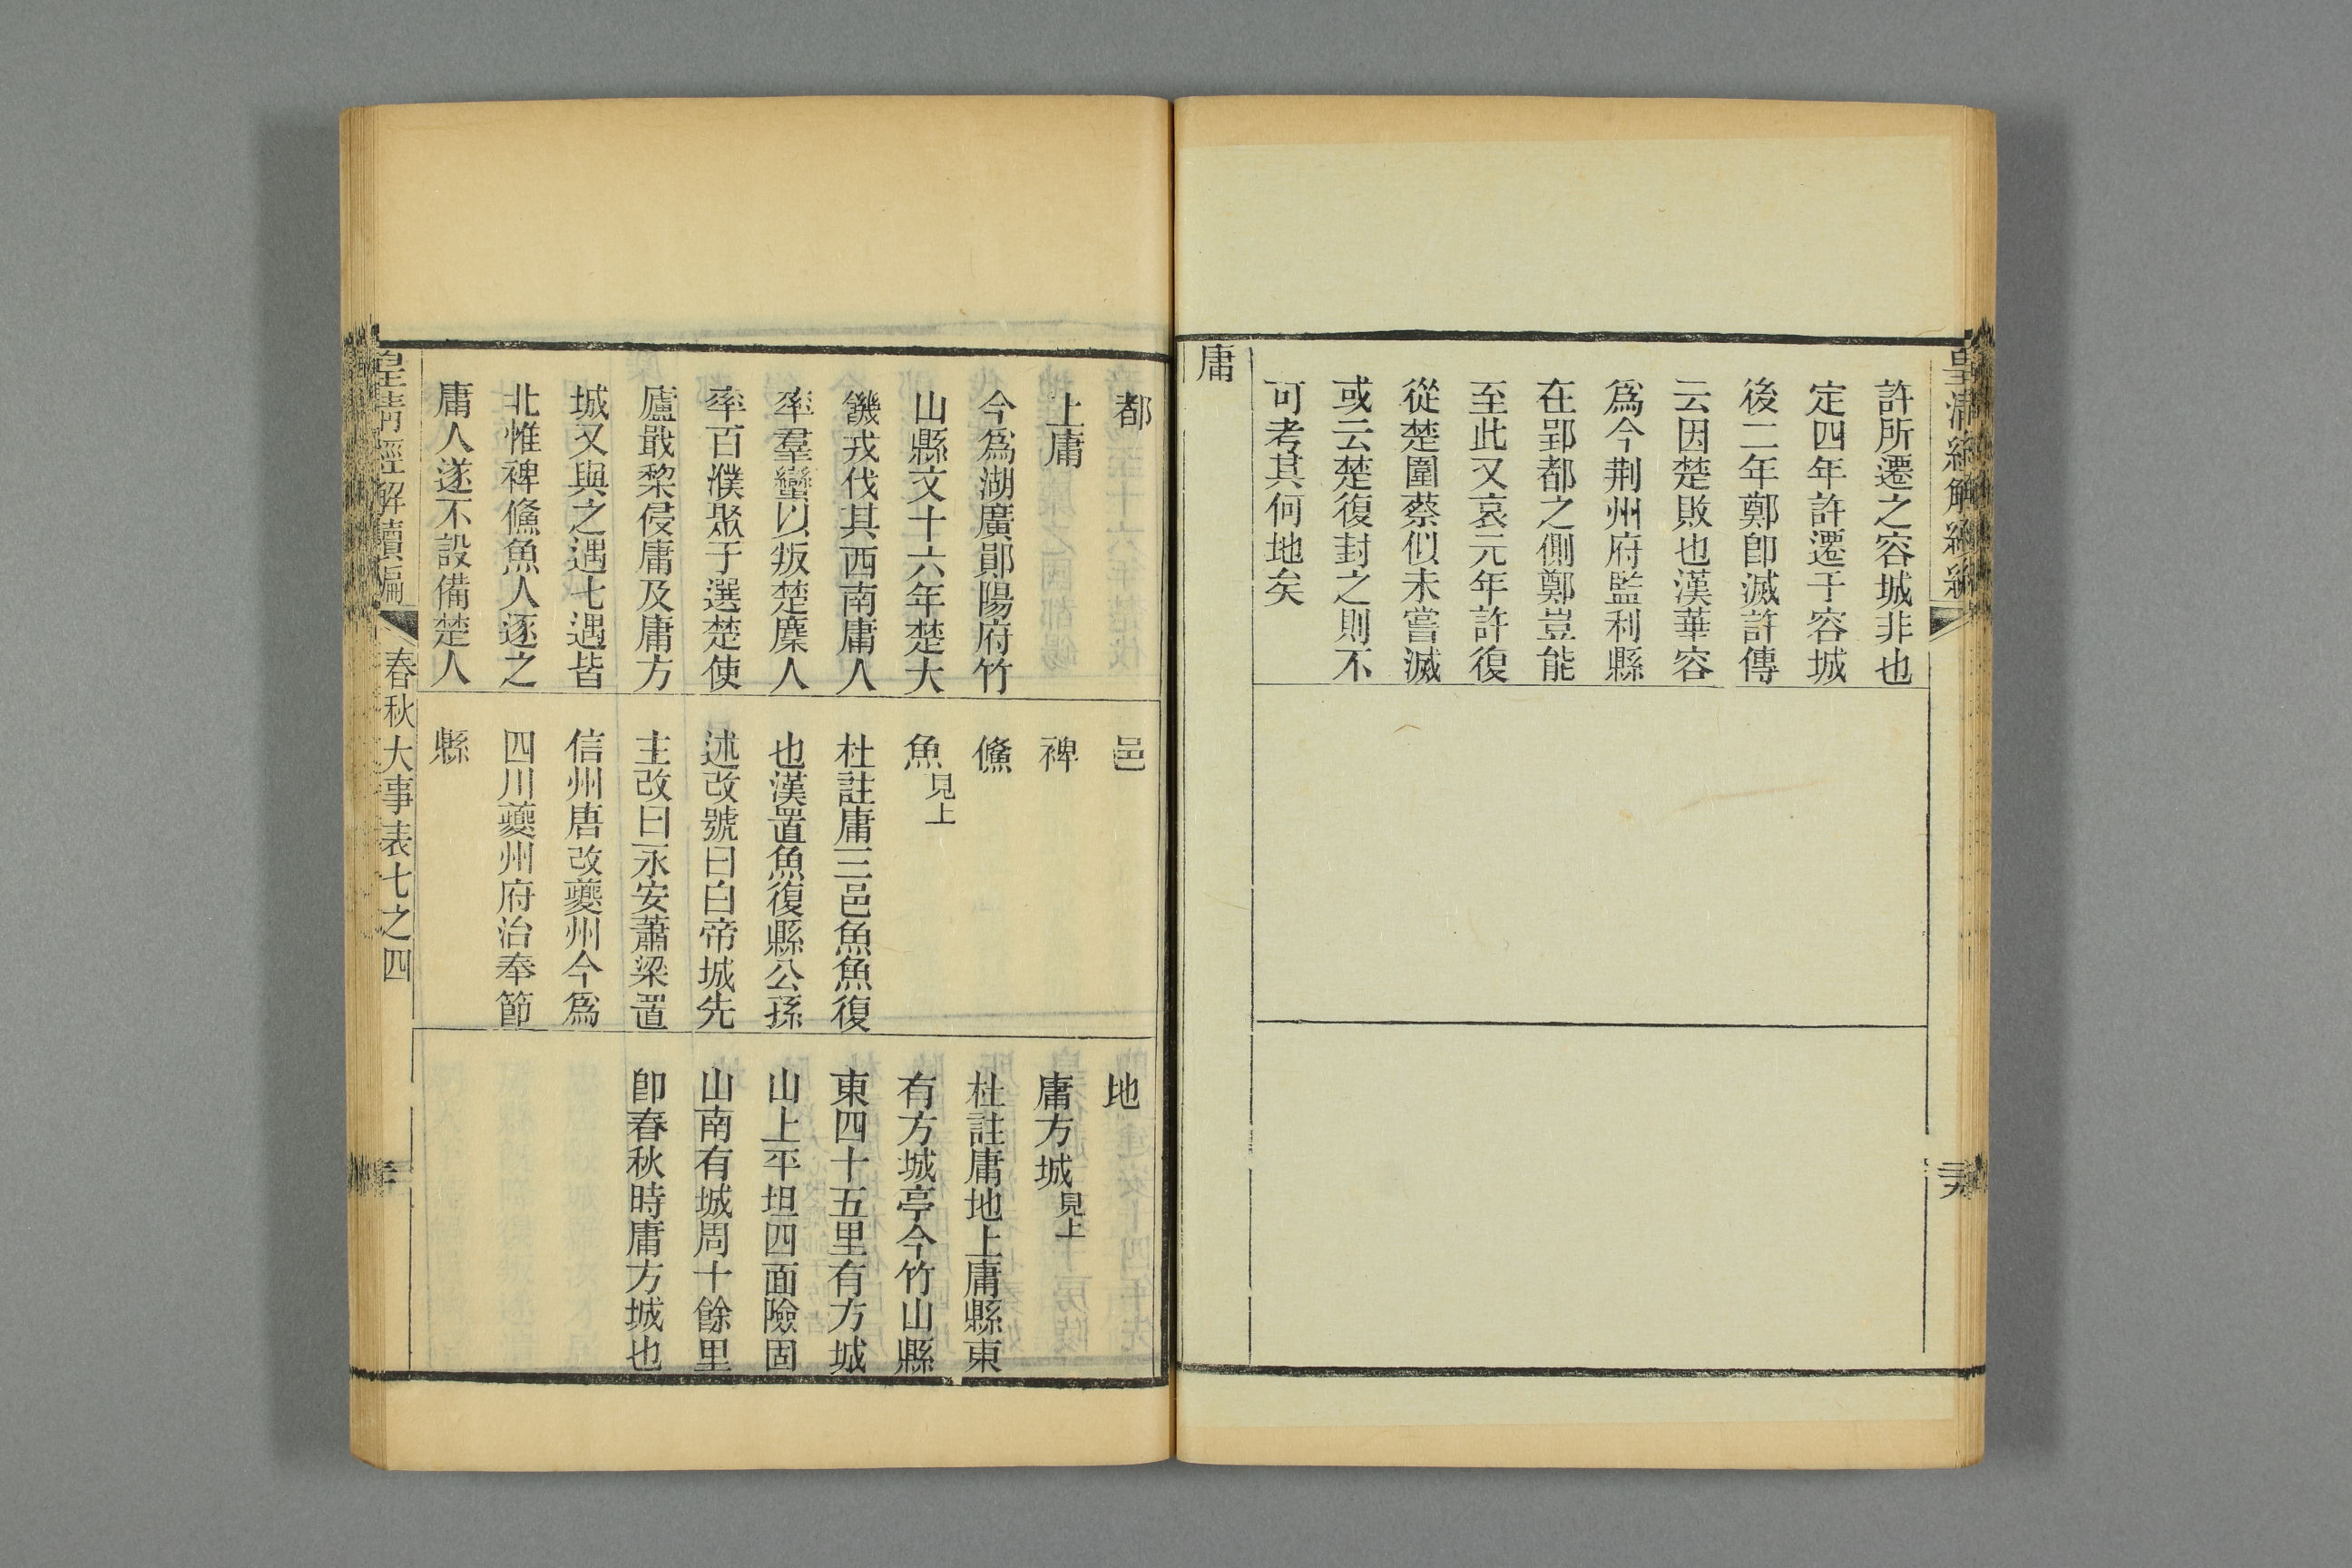 皇清經解續編
許所遷之容城非也
定四年許遷于容城
後二年鄭卽滅許傳
云因楚敗也漢華容
爲今荆州府監利縣
在郢都之側鄭豈能
至此又哀元年許復
從楚圍蔡似未嘗滅
或云楚復封之則不
可考其何地矣
庸
都
上庸
今爲湖廣鄖陽府竹
山縣文十六年楚大
饑戎伐其西南庸人
率羣蠻以叛楚麇人
率百濮聚于選楚使
廬戢黎侵庸及庸方
城又與之遇七遇皆
北惟裨鯈魚人逐之
庸人遂不設備楚人
邑
裨
鯈
魚見上
杜註庸三邑魚魚復
也漢置魚復縣公孫
述改號曰白帝城先
主改曰永安蕭梁置
信州唐改夔州今爲
四川夔州府治奉節
縣
地
庸方城見上
杜註庸地上庸縣東
有方城亭今竹山縣
東四十五里有方城
山上平坦四面險固
山南有城周十餘里
卽春秋時庸方城也
皇清經解續編
春秋大事表七之四